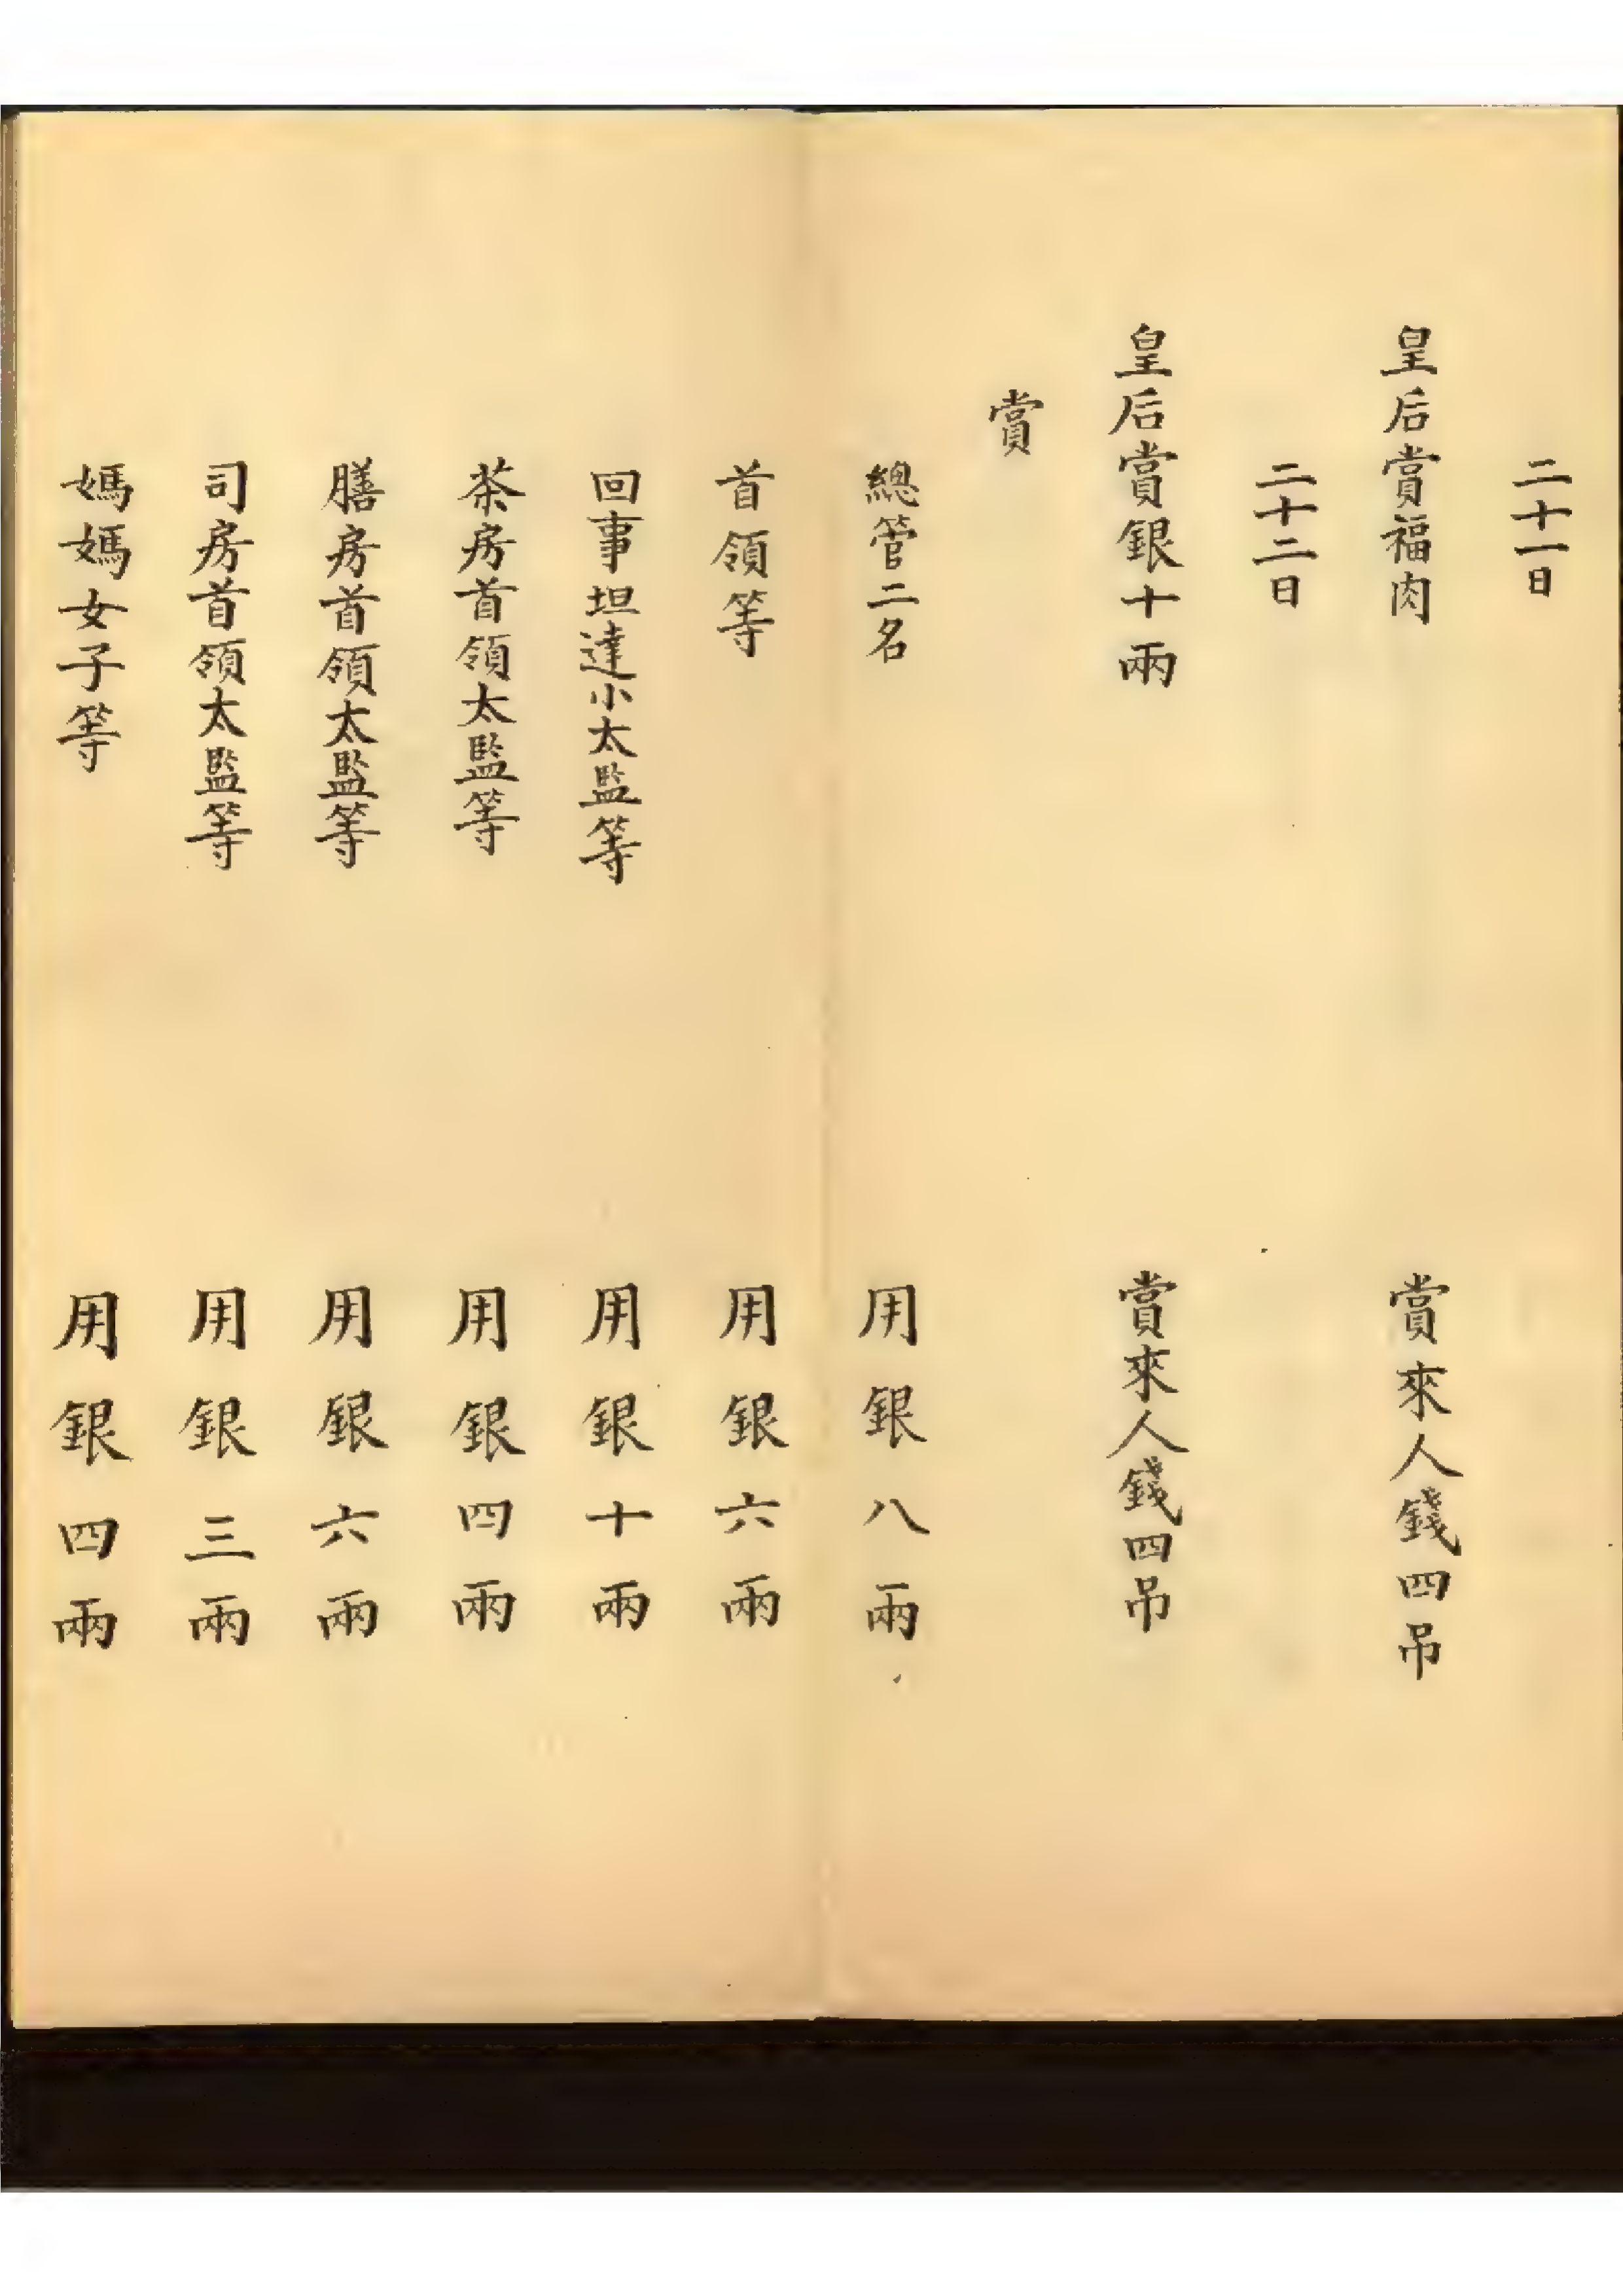 二十一日
皇后賞福肉 賞來人錢四吊
二十二日
皇后賞銀十兩 賞來人錢四吊
賞
總管二名 用銀八兩
首領等 用銀六兩
回事坦達小太監等 用銀十兩
茶房首領太監等 用銀四兩
膳房首領太監等 用銀六兩
司房首領太監等 用銀三兩
媽媽女子等 用銀四兩